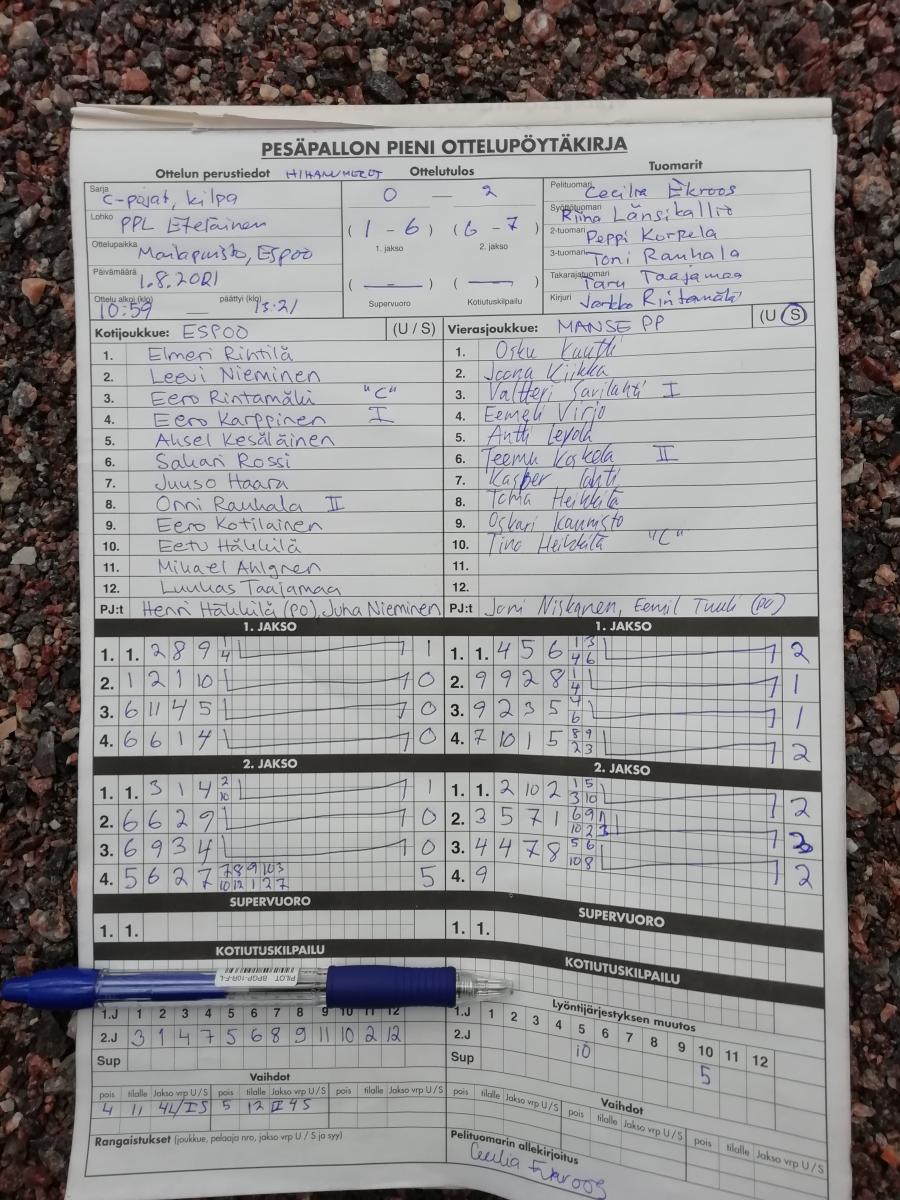 PESÄPALLON PIENI OTTELUPÖYTÄKIRJA
Ottelun perustiedot HIHAMERKIT Ottelutulos Tuomarit
Sarja C-pojat, kilpa
Lohko PPL Eteläinen
Ottelupaikka Monikonpuisto, Espoo
Päivämäärä 1.8.2021
Ottelu alkoi (klo) päättyi (klo)
10:59 — 13:21
0 — 2
(1 - 6) (6 - 7)
1. jakso 2. jakso
( — ) ( — )
Supervuoro Kotiutuskilpailu
Pelituomari Cecilia Ekroos
Syöttötuomari Riina Länsikallio
2-tuomari Peppi Korpela
3-tuomari Toni Rauhala
Takarajatuomari Taru Taajamaa
Kirjuri Jarkko Rintamäki
Kotijoukkue: ESPOO (U / S)
1. Elmeri Rintilä
2. Leevi Nieminen
3. Eero Rintamäki "C"
4. Eero Karppinen I
5. Aksel Kesäläinen
6. Sakari Rossi
7. Juuso Haara
8. Onni Rauhala II
9. Eero Kotilainen
10. Eetu Häkkilä
11. Mikael Ahlgren
12. Luukas Taajamaa
PJ:t Henri Häkkilä (PO), Juha Nieminen
Vierasjoukkue: MANSE PP (U / S)
1. Osku Kuutti
2. Joona Kiikka
3. Valtteri Savilahti I
4. Eemeli Virjo
5. Antti Lepola
6. Teemu Koskela II
7. Kasper Lahti
8. Toma Heikkilä
9. Oskari Kaunisto
10. Tino Heikkilä "C"
11.
12.
PJ:t Joni Niskanen, Eemil Tuuli (PO)
1. JAKSO
1. 1. 2 8 9 1 4 1
2. 1 2 1 10 0
3. 6 11 4 5 0
4. 6 6 1 4 0
1. JAKSO
1. 1. 4 5 6 1 3 4 6 2
2. 9 9 2 8 1 4 1
3. 9 2 3 5 4 6 1
4. 7 10 1 5 8 9 2 3 2
2. JAKSO
1. 1. 3 1 4 2 10 1
2. 6 6 2 9 0
3. 6 9 3 4 0
4. 5 6 2 7 7 8 9 10 3 10 12 1 2 7 5
2. JAKSO
1. 1. 2 10 2 1 5 3 10 2
2. 3 5 7 1 6 9 1 10 2 3 3
3. 4 4 7 8 5 6 10 8 2
4. 9
SUPERVUORO
1. 1.
SUPERVUORO
1. 1.
KOTIUTUSKILPAILU
KOTIUTUSKILPAILU
PILOT BPGP-10R-F-L
1.J 1 2 3 4 5 6 7 8 9 10 11 12
2.J 3 1 4 7 5 6 8 9 11 10 2 12
Sup
Lyöntijärjestyksen muutos
1.J 1 2 3 4 5 6 7 8 9 10 11 12
2.J 10 5
Sup
Vaihdot
pois tilalle Jakso vrp U / S pois tilalle Jakso vrp U / S pois tilalle Jakso vrp U / S
4 11 5 12 II 4 S
Rangaistukset (joukkue, pelaaja nro, jakso vrp U / S ja syy)
Vaihdot
pois tilalle Jakso vrp U / S pois tilalle Jakso vrp U / S pois tilalle Jakso vrp U / S
Pelituomarin allekirjoitus
Cecilia Ekroos